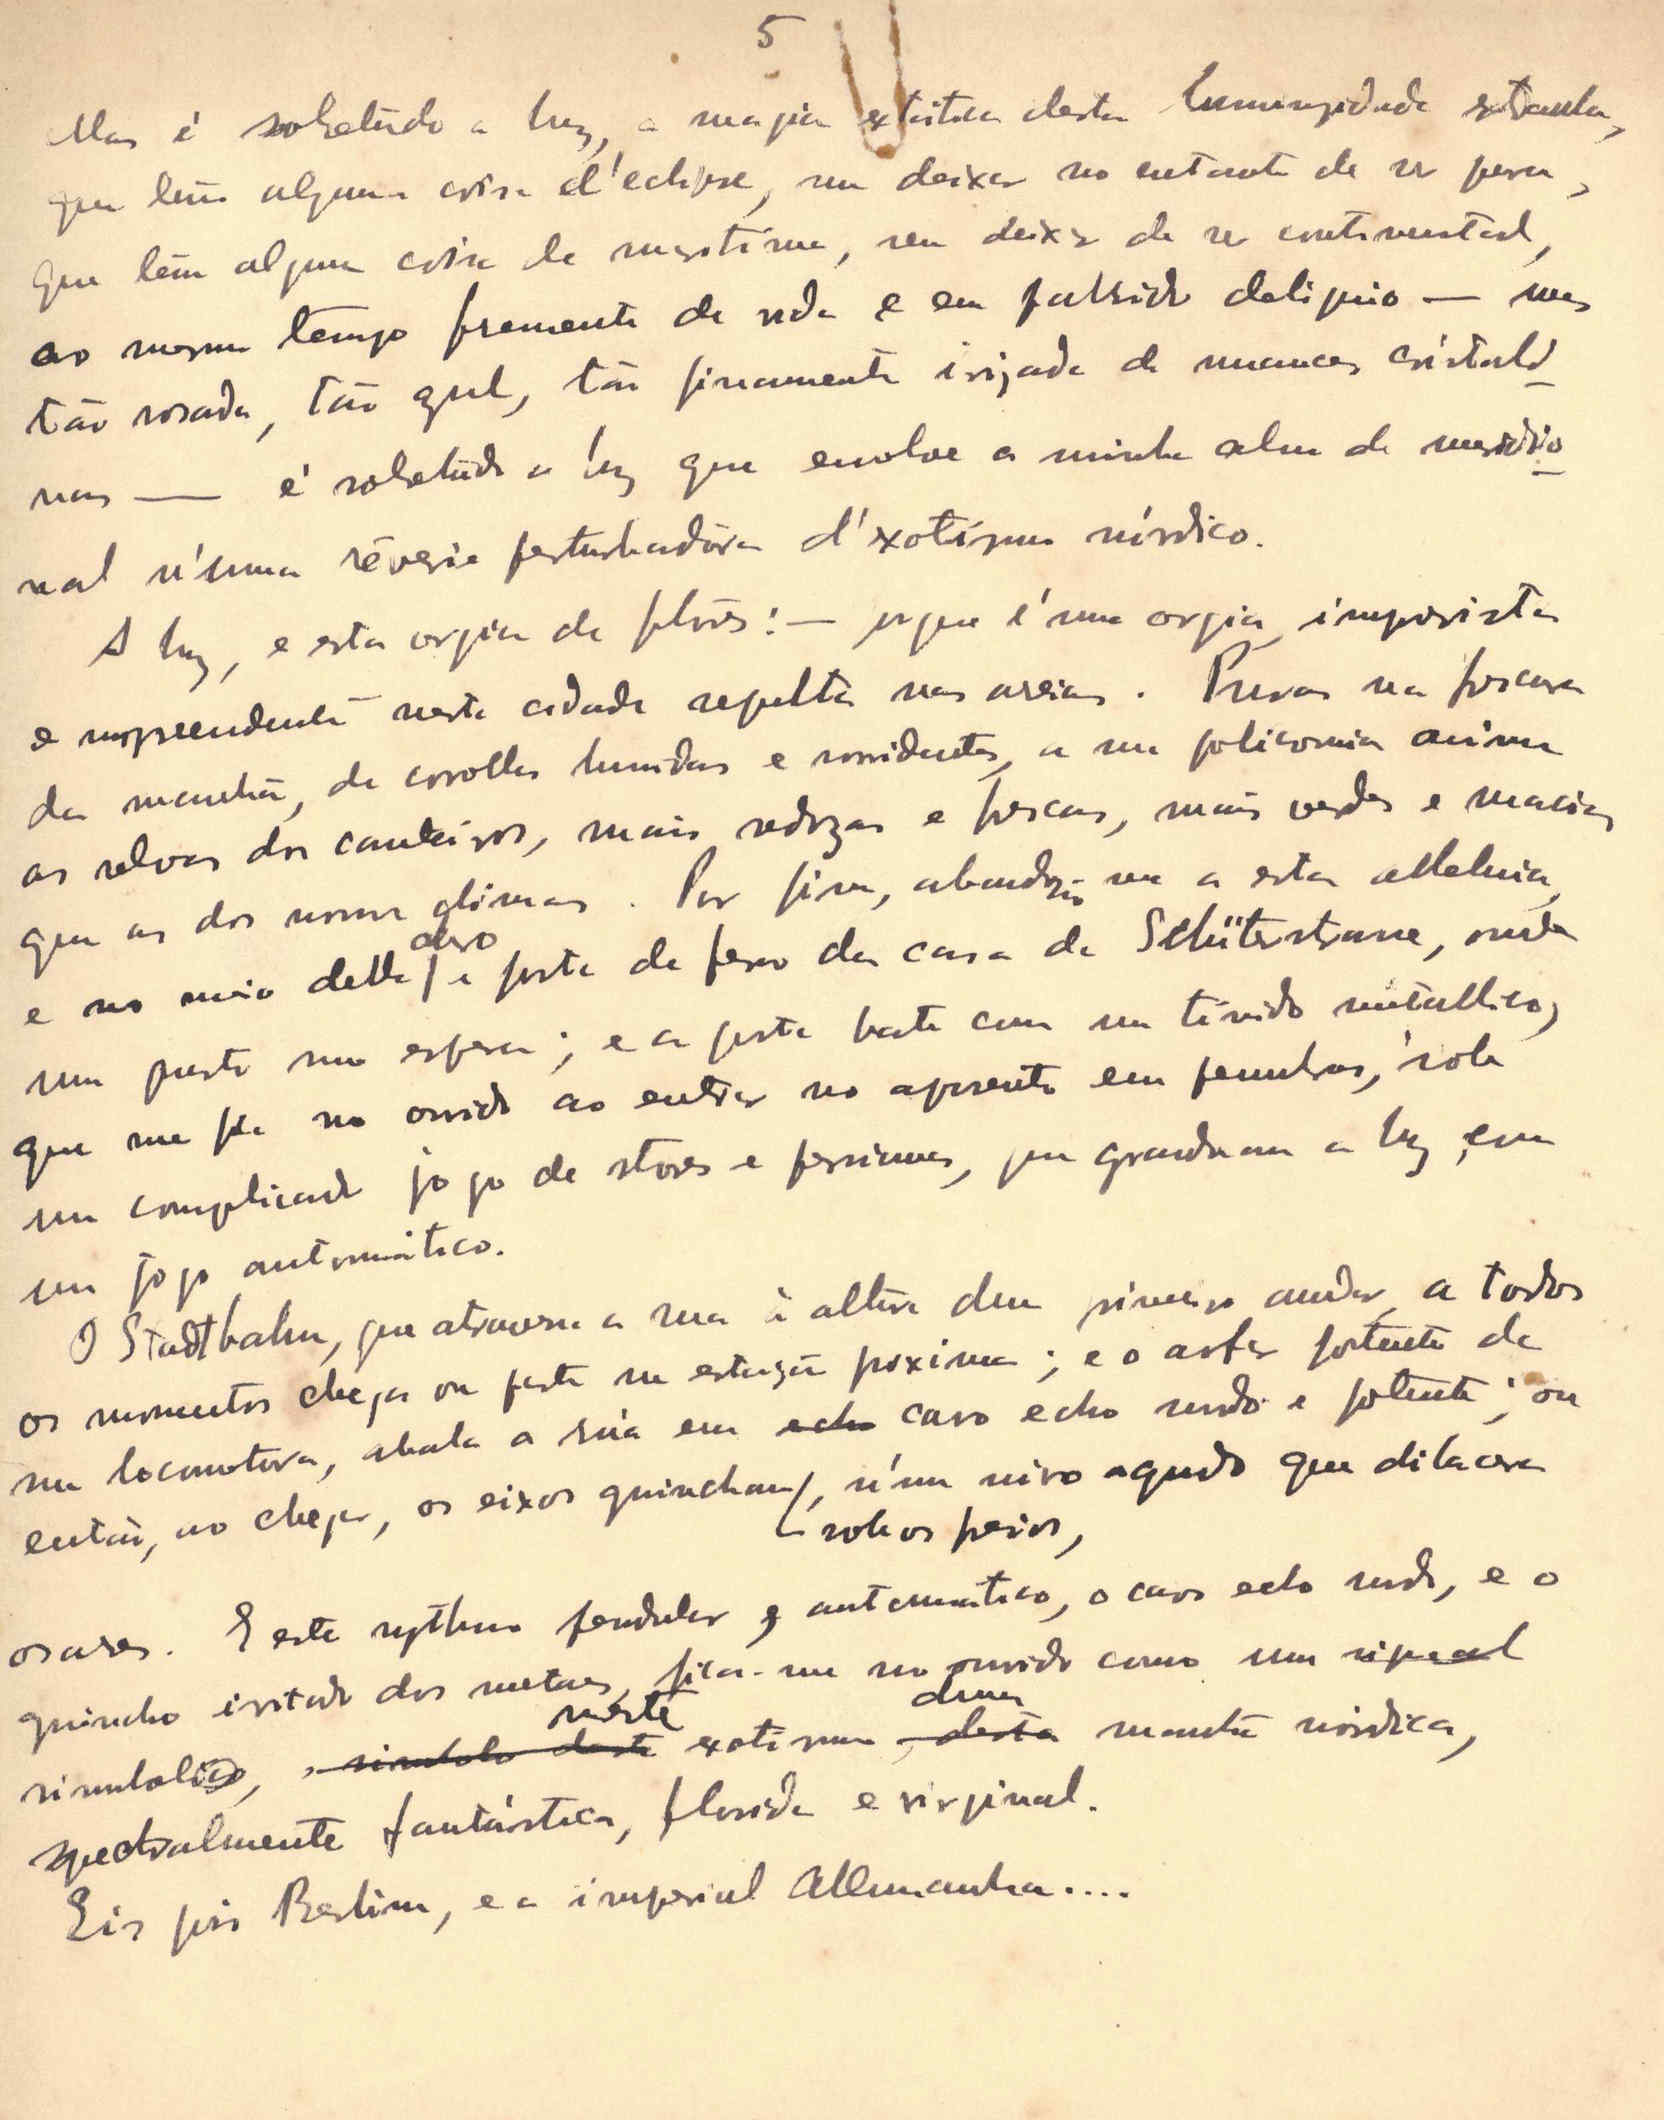 5
Mas é sobretudo a luz, a magia extática desta luminosidade extranha,
que tem alguma coisa d'eclipse, sem deixar no entanto de ser pura,
que tem alguma coisa de maritima, sem deixar de ser continental,
ao mesmo tempo fremente de vida e em pallido deliquio — mas
tão rosada, tão azul, tão finamente irizada de nuances cristali-
nas — é sobretudo a luz que envolve a minha alma de meridio-
nal n'uma rêverie perturbadora d'exotismo nórdico.
A luz, e esta orgia de flôres: — porque é uma orgia, imprevista
e surprehendente nesta cidade sepulta nas areias. Puras na frescura
da manhã, de corollas humidas e sorridentes, a sua policromia anima
as relvas dos canteiros, mais sedozas e frescas, mais verdes e macias
que as dos nossos climas. Por fim, abandono-me a esta alleluia,
e no meio della abro a porta de ferro da casa da Schlüterstrasse, onde
um quarto me espera; e a porta bate com um tinido metallico,
que me fica no ouvido ao entrar no aposento em penumbra, sob
um complicado jogo de stores e persianas, que graduam a luz com
um jogo automático.
O Stadtbahn, que atravessa a rua á altura dum primeiro andar, a todos
os momentos chega ou parte na estação proxima; e o arfar portente da
sua locomotiva, abala a rua em echo cavo echo surdo e potente; ou
então, ao chegar, os eixos guincham, n'um silvo agudo que dilacera
sob os freios,
os ares. E este rythmo pendular e automático, o cavo echo surdo, e o
guincho irritado dos metaes, fica-me no ouvido como um signal
simbolico, simbolo deste neste exotismo, desta duma manhã nórdica,
spectralmente fantástica, florida e virginal.
Eis pois Berlim, e a imperial Allemanha....